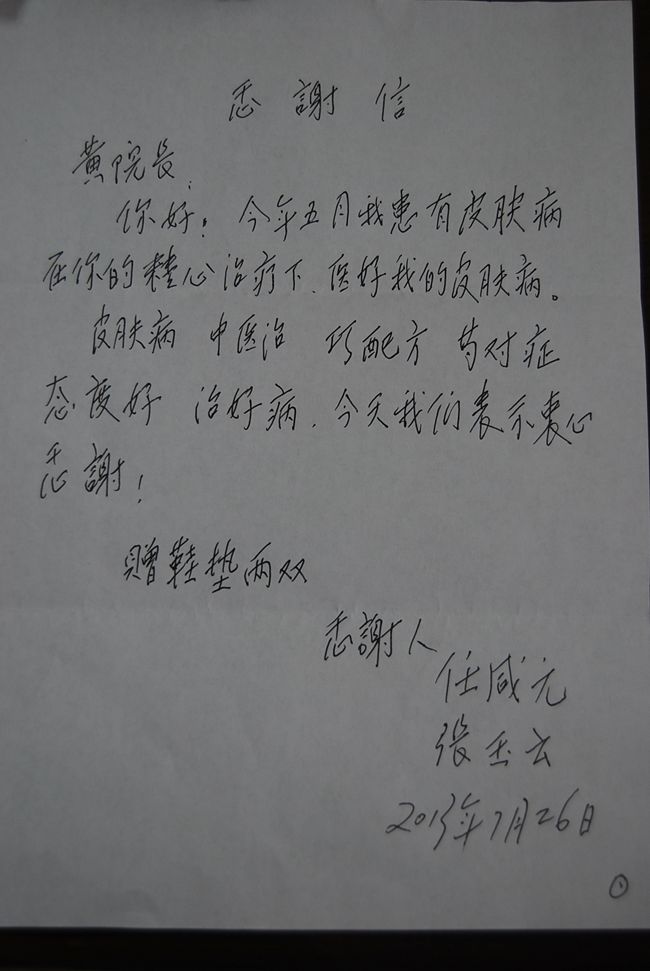 感謝信
黄院长：
你好：今年五月我患有皮肤病
在你的精心治疗下、医好我的皮肤病。
皮肤病 中医治 巧配方 药对症
态度好 治好病、今天我们表示衷心
感謝！
赠鞋垫两双
感謝人
任咸元
張玉云
2013年7月26日
①